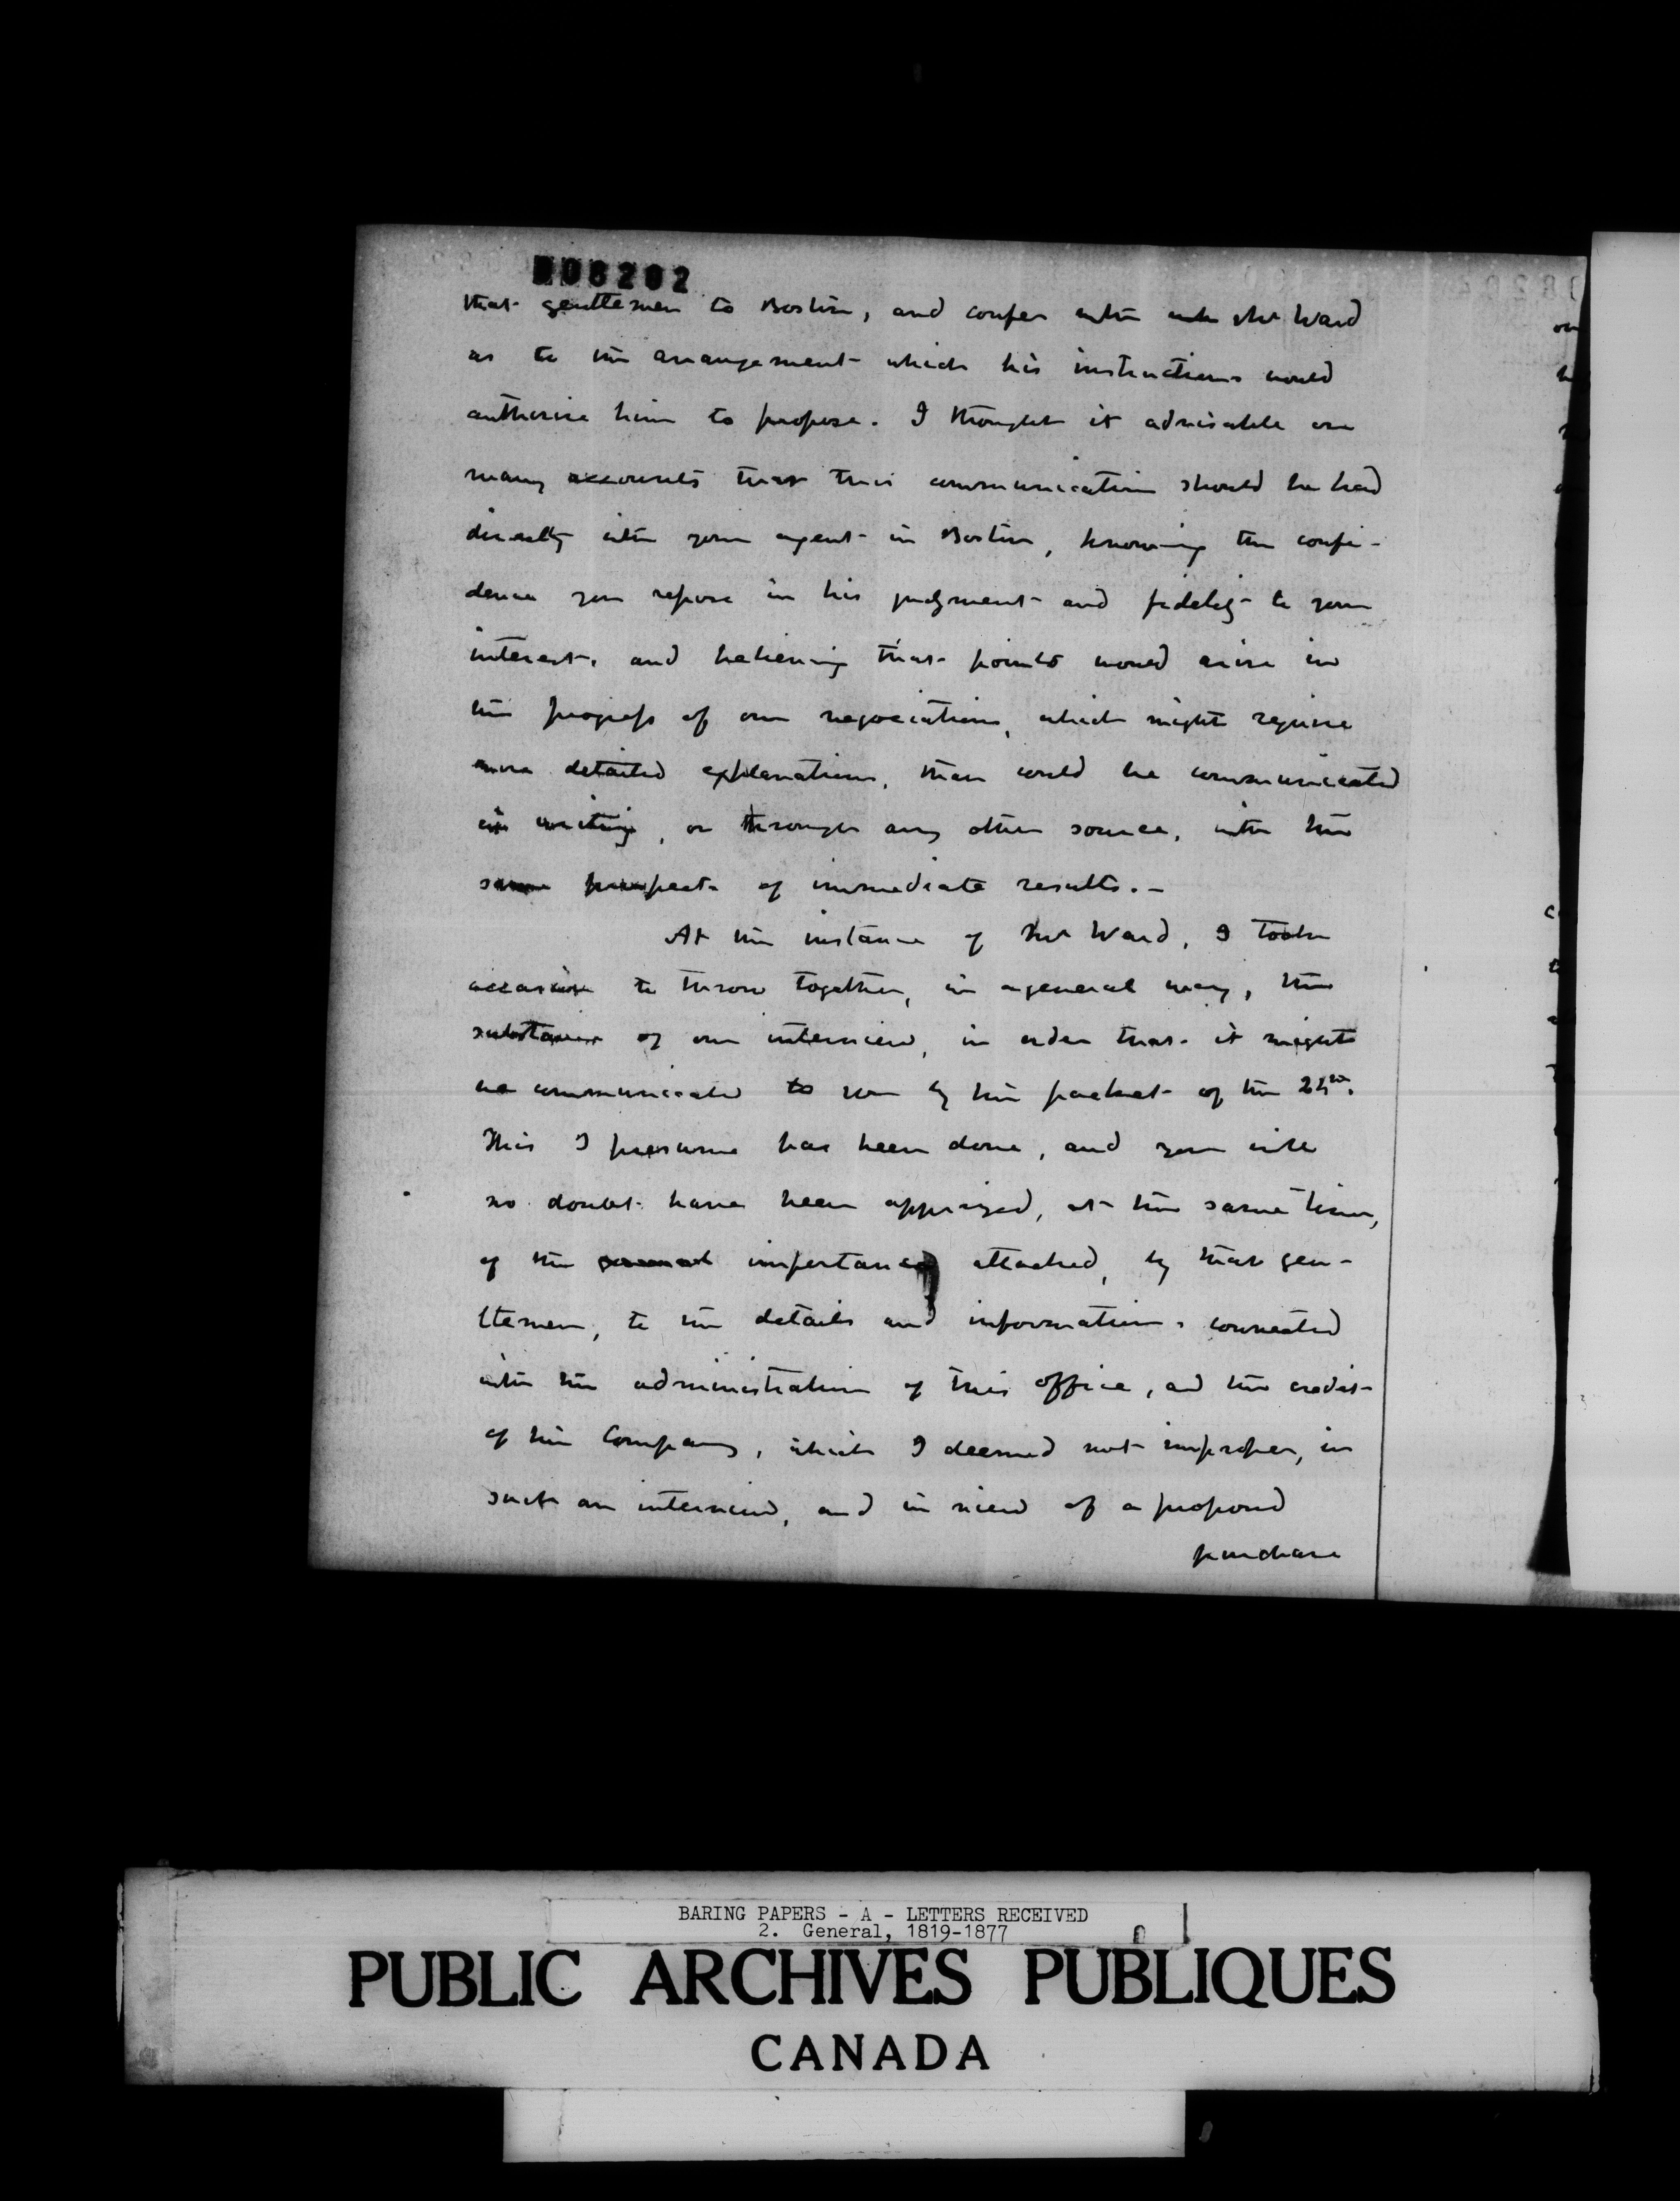 008202
that gentlemen to Boston, and confer with with Mr Ward
as to the arrangement which his instructions would
authorise him to propose. I thought it advisable on
many accounts that this communication should be had
directly with your agent in Boston, knowing the confi-
dence you repose in his judgment and fidelity to your
interests, and believing that points would arise in
the progress of our negociations, which might require
more detailed explanations, than could be communicated
in writing, or through any other source, with the
same prospect of immediate results. -
At the instance of Mr Ward, I took
occasion to throw together, in a general way, the
substance of our interview, in order that it might
be communicated to you by the packet of the
This I presume has been done, and you will
no doubt have been apprized, at the same time,
of the importance attached, by that gen-
tlemen, to the details and informations connected
with the administration of this office, and the credit
of the Company, which I deemed not improper, in
such an interview, and in view of a proposed
purchase
BARING PAPERS - A - LETTERS RECEIVED
2. General, 1819-1877
PUBLIC ARCHIVES PUBLIQUES
CANADA